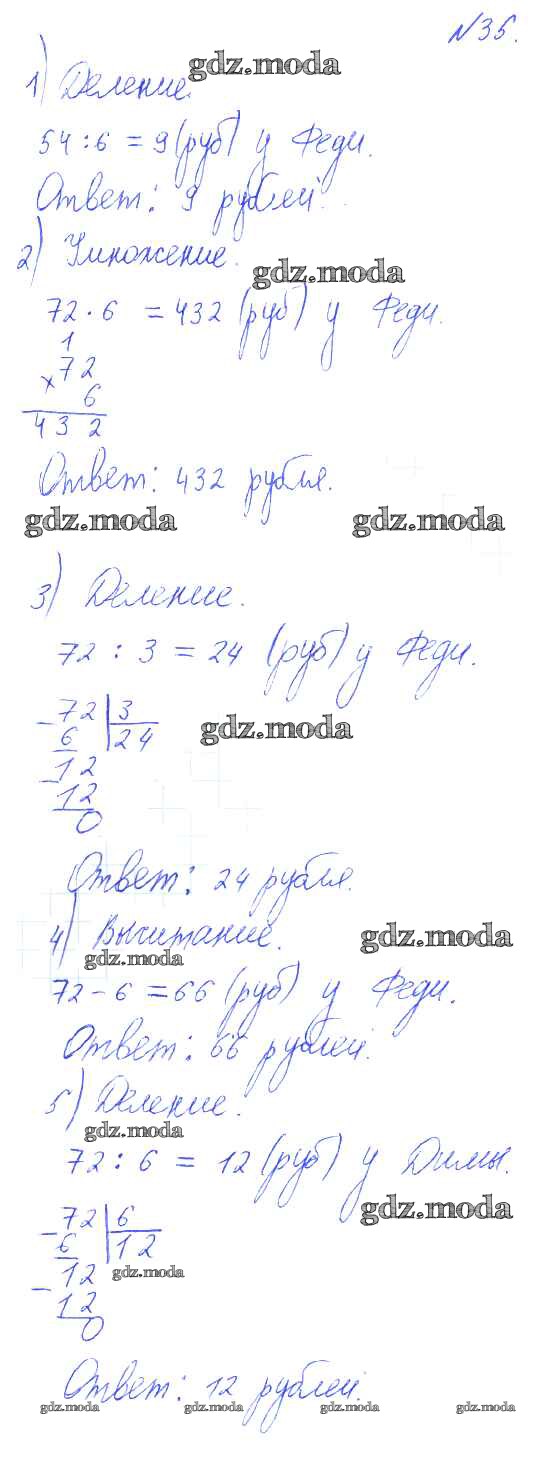 №35.
gdz.moda
1) Деление.
54 : 6 = 9 (руб) у Феди.
Ответ: 9 рублей.
2) Умножение.
gdz.moda
72 · 6 = 432 (руб) у Феди.
1
× 72
6
432
Ответ: 432 рубля.
gdz.moda gdz.moda
3) Деление.
72 : 3 = 24 (руб) у Феди.
- 72 | 3
6 24
gdz.moda
- 12
12
0
Ответ: 24 рубля.
4) Вычитание.
gdz.moda
gdz.moda
72 - 6 = 66 (руб) у Феди.
Ответ: 66 рублей.
5) Деление.
gdz.moda
72 : 6 = 12 (руб) у Димы.
gdz.moda
- 72 | 6
6 12
- 12
gdz.moda
12
0
Ответ: 12 рублей.
gdz.moda gdz.moda gdz.moda gdz.moda